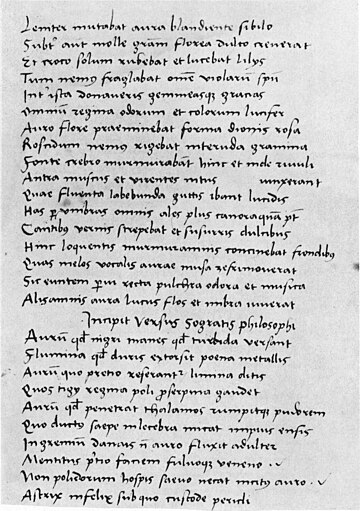 Lemter mutabat aura blandiente sibilo
Subt' aut molle gram florea dulco creverat
Et croco solum rubebat et lucebat lilys
Tum nemus fraglabat omne violarum spu
Int' ista donaveris gemmeasq gracias
Omnium regina odorum et colorum lucifer
Auro flore praeminebat forma dionis rosa
Roscidum nemus rigebat interuda gramina
Fonte crebro murmurabat hinc et inde rivuli
Antra muscus et virentes intus vinxerant
Quae fluenta labebunda guttis ibant lucidis
Has p umbras omnis ales plus canoraque pt
Cantibus vernis strepebat et susurris dulcibus
Hinc loquentis murmuramnis concinebat frondibus
Quas melos vocalis aurae musa moverat
Sic euntem p recta pulchra odora et musica
aura lucus flos et umbra iuverat
Incipit versus Socratis philosophi
Aurum qd nigri manes qd turbida versant
Flumina qd duris extorsit poena metallis
Aurum quo pretio referantur lumina ditis
Quos regina poli proserpina gaudet
Aurum qd penetrat thalamos rumpitq pudorem
Quo ductus saepe inlecebra micat impius ensis
In gremium danais n auro fluxit adulter
Mentitus ptio faciem fulvoq veneno
Non polidorum hospis saevo necat auro
Astrix infelix sub quo custode pericli